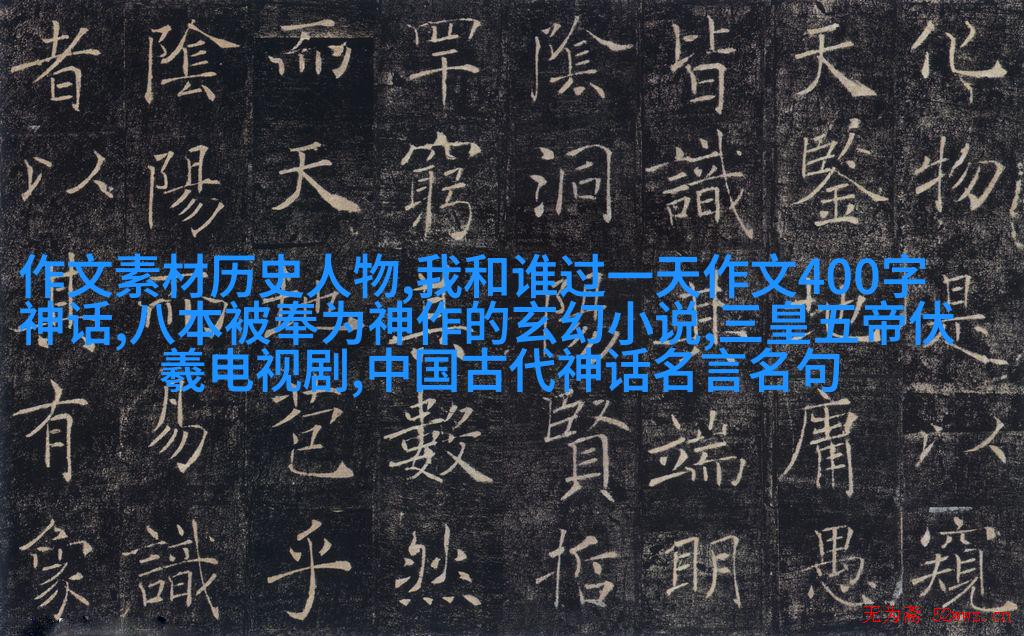 化物是以窺
天鑒地庸愚
皆識端明
陰洞陽賢哲
罕窮數然
而天苞乎
陰陽易識
者以有象
作文素材历史人物,我和谁过一天作文400字
神话,八本被奉为神作的玄幻小说,三皇五帝伏
羲电视剧,中国古代神话名言名句
无为斋 52wwz.cn